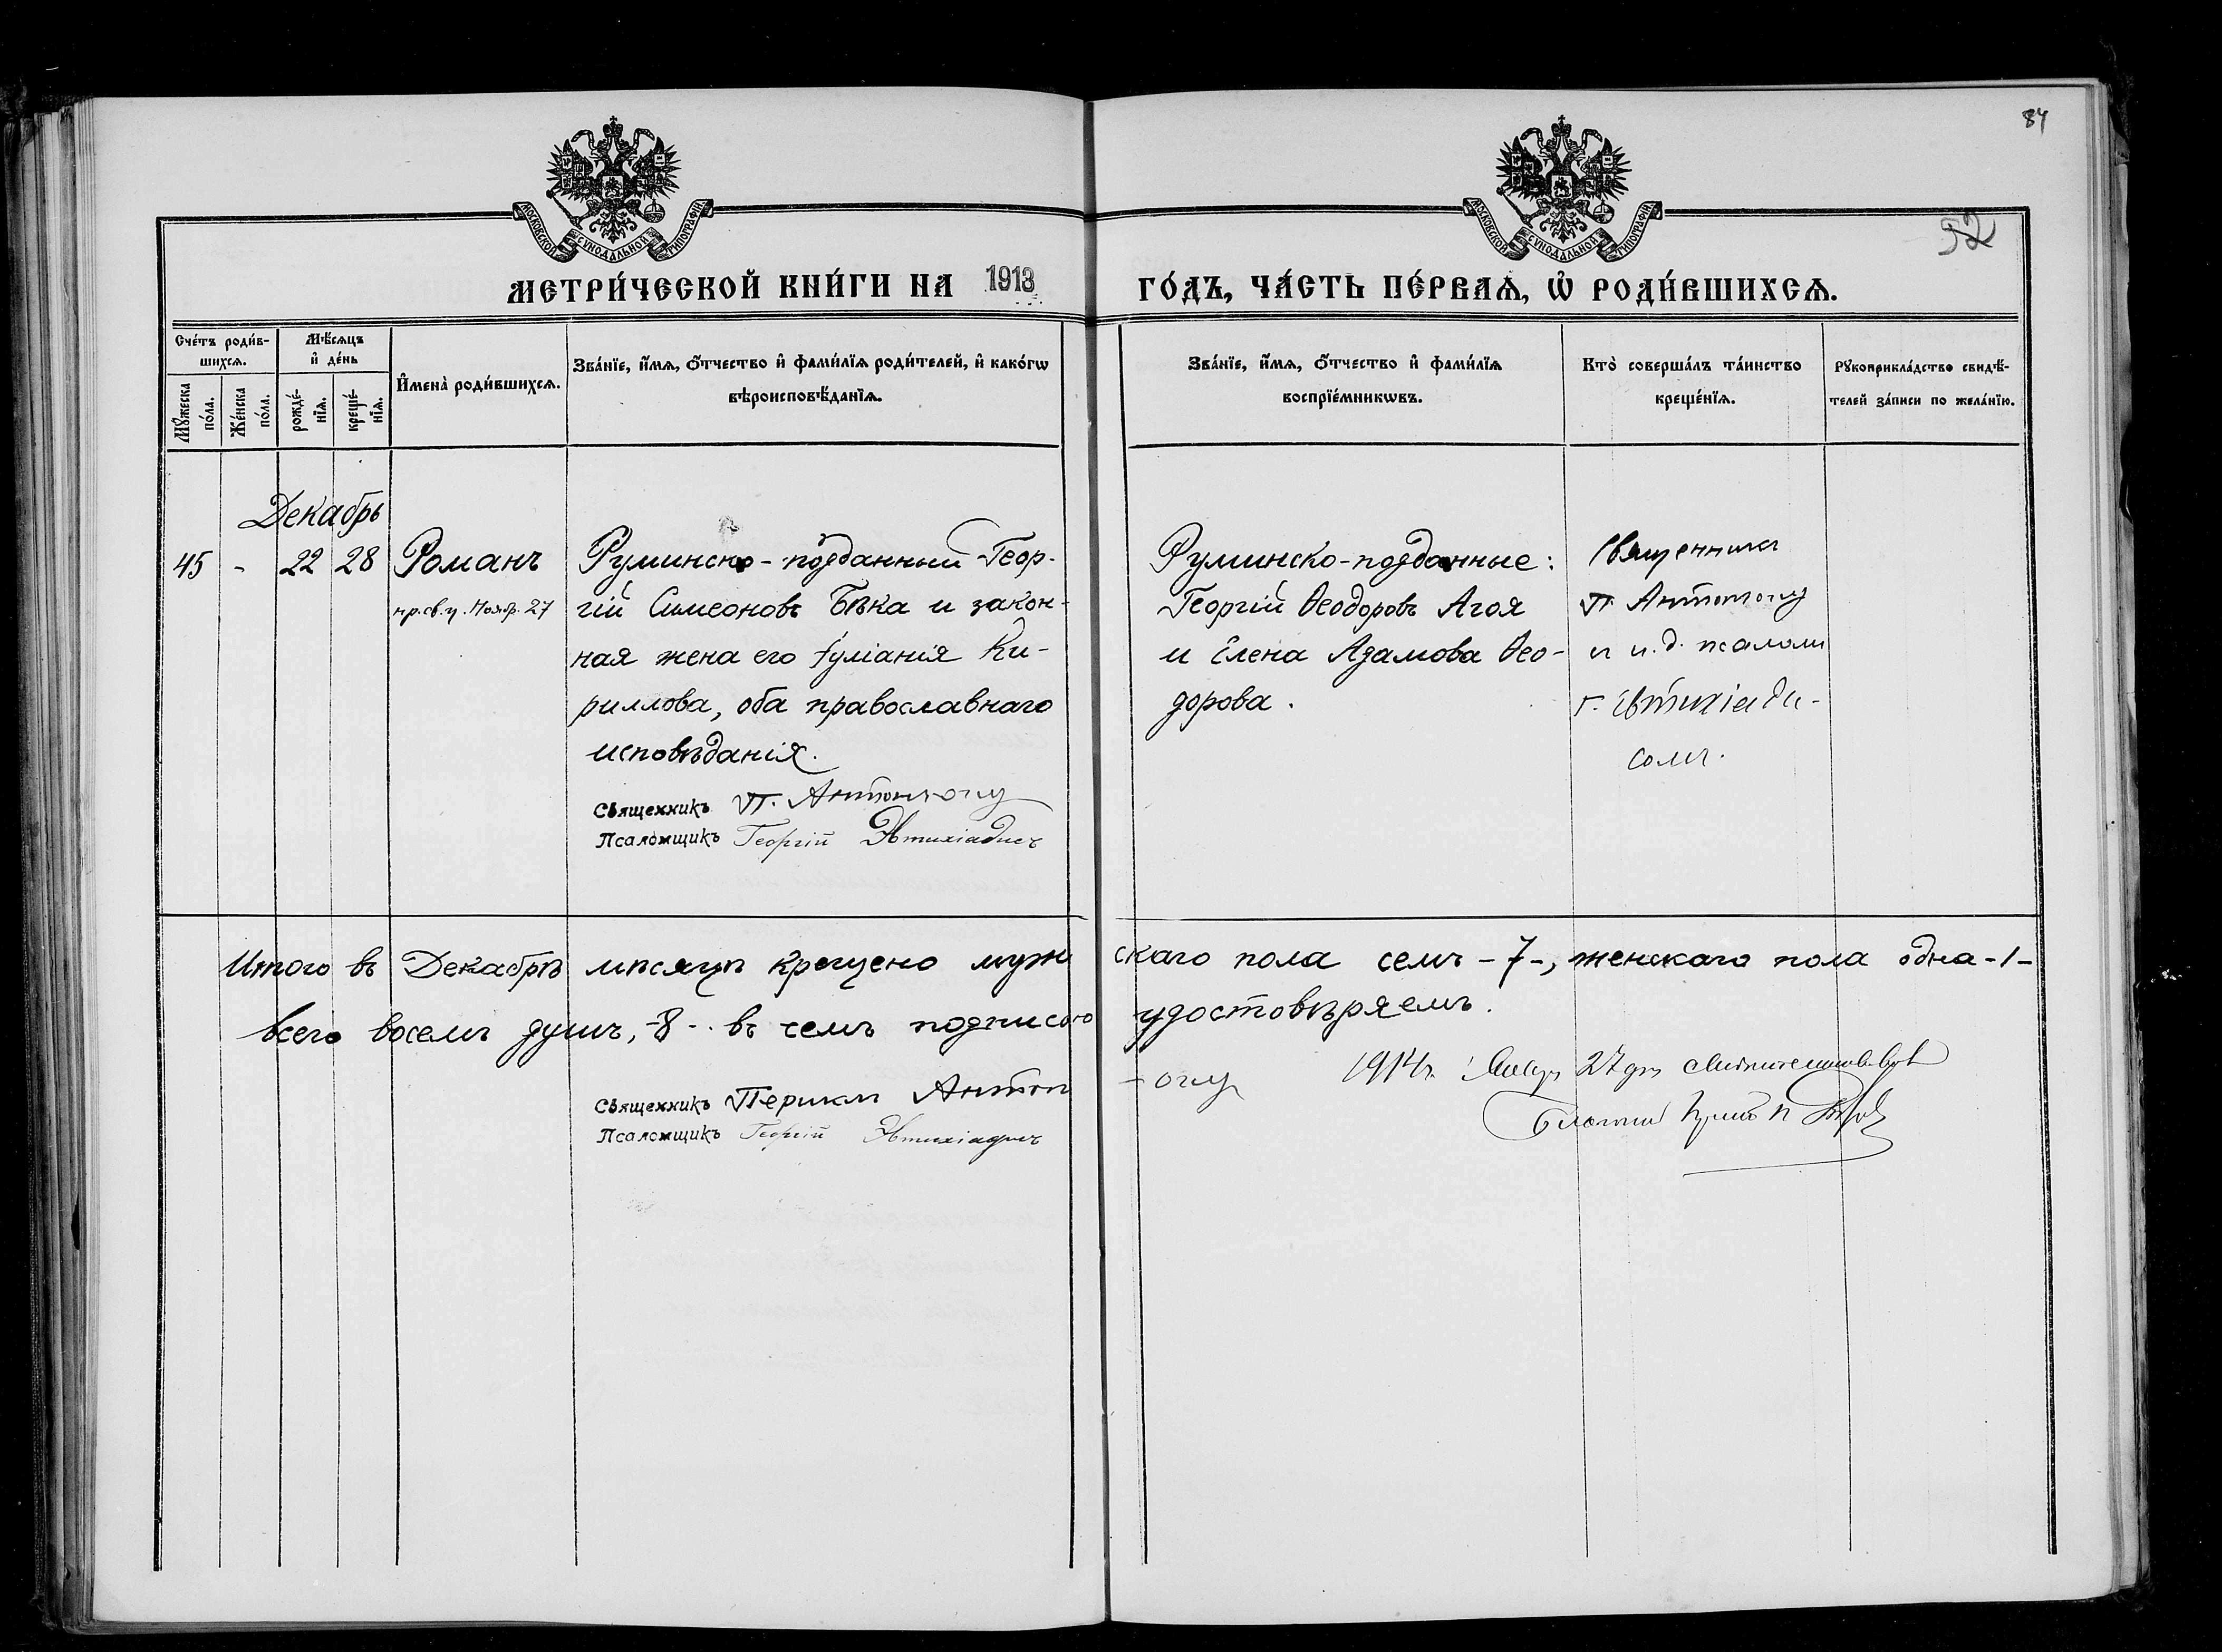 84
92
МОСКОВСКОЙ СѴНОДАЛЬНОЙ ТИПОГРАФІИ
МОСКОВСКОЙ СѴНОДАЛЬНОЙ ТИПОГРАФІИ
МЕТРИ́ЧЕСКОЙ КНИ́ГИ НА 1913 ГО́ДЪ, ЧА́СТЬ ПЕ́РВАѦ, Ѡ҆ РОДИ́ВШИХСѦ.
Сче́тъ роди́в-
шихсѧ.
Мꙋ́жеска по́ла.
Же́нска по́ла.
Мѣ́сѧцъ
и҆ де́нь
рожде́-
нїѧ.
креще́-
нїѧ.
И҆мена̀ роди́вшихсѧ.
Зва́нїе, и҆́мѧ, ѻ҆́тчество и҆ фами́лїѧ роди́телей, и҆ како́гѡ
вѣроисповѣ́данїѧ.
Зва́нїе, и҆́мѧ, ѻ҆́тчество и҆ фами́лїѧ
воспрїе́мникѡвъ.
Кто̀ соверша́лъ та́инство
креще́нїѧ.
Рꙋкоприкла́дство свидѣ́-
телей за́писи по жела́нїю.
Декабрь
45 - 22 28 Романъ
пр. св. ч. Нояб. 27
Руминско-подданный Геор-
гій Симеоновъ Бѣка и закон-
ная жена его Іуліанія Ки-
риллова, оба православнаго
исповѣданія.
Священникъ П. Антоноглу
Псаломщикъ Георгій Эвтихіадисъ
Руминско-подданные:
Георгій Ѳеодоровъ Агоя
и Елена Адамова Ѳео-
дорова.
Священникъ
П. Антоноглу
и и. д. псалом
Г. Евтихіади-
сомъ.
Итого въ Декабрѣ мѣсяцѣ крещено муж скаго пола семь -7-, женскаго пола одна -1-
всего восемь душъ, -8-. въ чемъ подписью удостовѣряемъ.
Священникъ Периклъ Антон -оглу
Псаломщикъ Георгій Эвтихіадисъ
1914 г. 27 дня